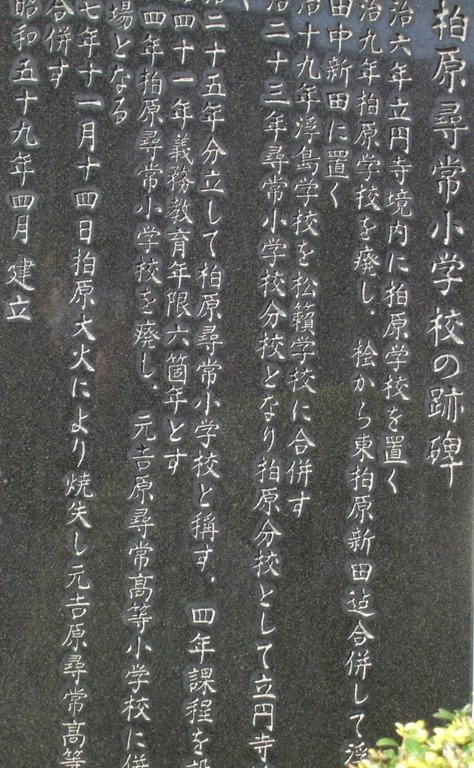 柏原尋常小学校の跡碑
治六年立円寺境内に柏原学校を置く
治九年柏原学校を廃し、桧から東柏原新田迠合併して浮
田中新田に置く
治十九年浮島学校を松頼学校に合併す
治二十三年尋常小学校分校となり柏原分校として立円寺
二十五年分立して柏原尋常小学校と稱す、四年課程を設
四十一年義務教育年限六箇年とす
四年柏原尋常小学校を廃し、元吉原尋常高等小学校に併
場となる
七年十一月十四日柏原大火により焼失し元吉原尋常高等
合併す
昭和五十九年四月 建立